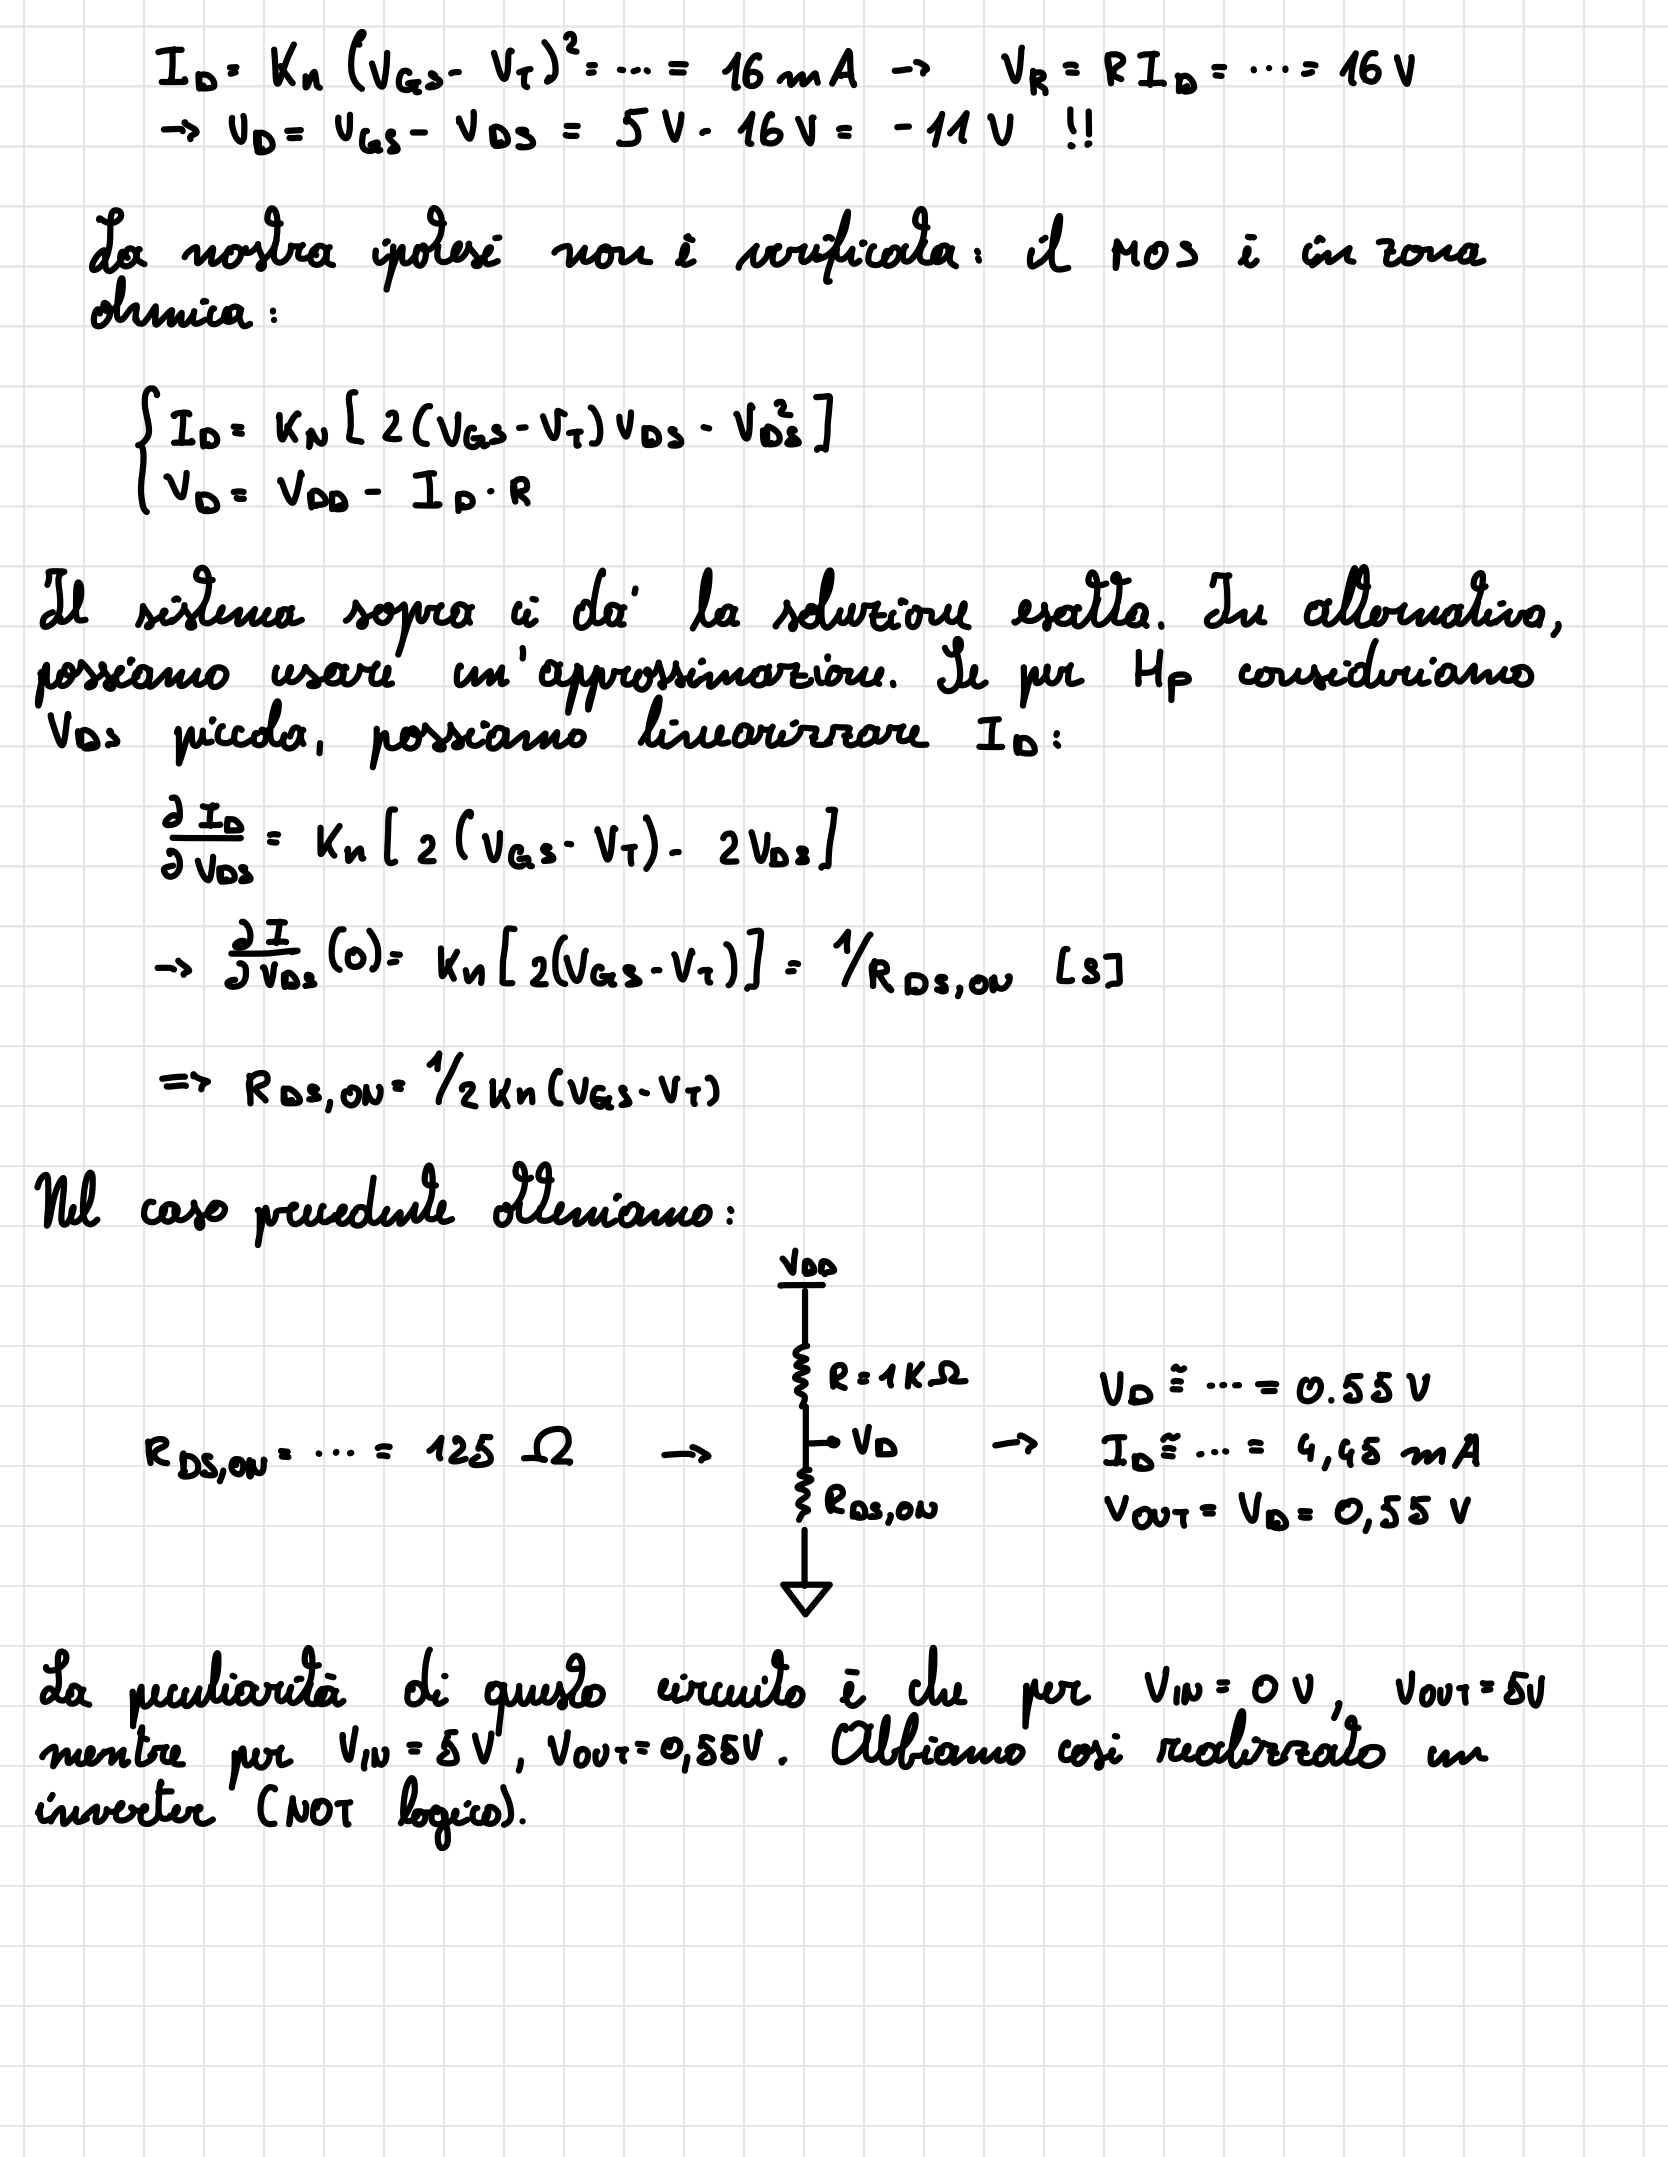 I_D = K_n (V_GS - V_T)² = ... = 16 mA → V_R = R I_D = ... = 16 V
→ V_D = V_GS - V_DS = 5 V - 16 V = -11 V !!
La nostra ipotesi non è verificata: il MOS è in zona
ohmica:
{ I_D = K_N [ 2 (V_GS - V_T) V_DS - V_DS² ]
V_D = V_DD - I_D · R
Il sistema sopra ci da' la soluzione esatta. In alternativa,
possiamo usare un'approssimazione. Se per Hp consideriamo
V_DS piccola, possiamo linearizzare I_D:
∂I_D/∂V_DS = K_n [ 2 (V_GS - V_T) - 2V_DS ]
→ ∂I/∂V_DS (0) = K_n [ 2(V_GS - V_T) ] = 1/R_DS,ON [S]
=> R_DS,ON = 1/2 K_n (V_GS - V_T)
Nel caso precedente otteniamo:
V_DD
R = 1 KΩ
V_D
R_DS,ON
R_DS,ON = ... = 125 Ω →
→ V_D ≅ ... = 0.55 V
I_D ≅ ... = 4,45 mA
V_OUT = V_D = 0,55 V
La peculiarità di questo circuito è che per V_IN = 0 V, V_OUT = 5V
mentre per V_IN = 5 V, V_OUT = 0,55V. Abbiamo così realizzato un
inverter (NOT logico).